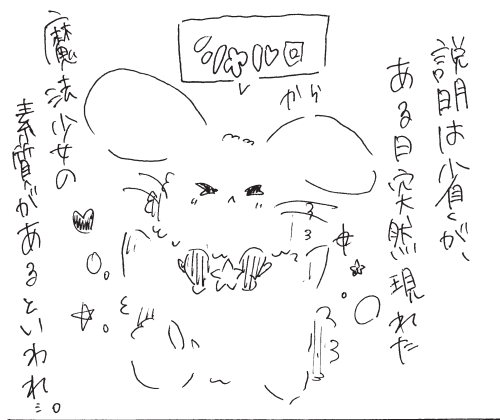 説明は省くが、
ある日突然現れた
から
魔法少女の
素質があるといわれ…。